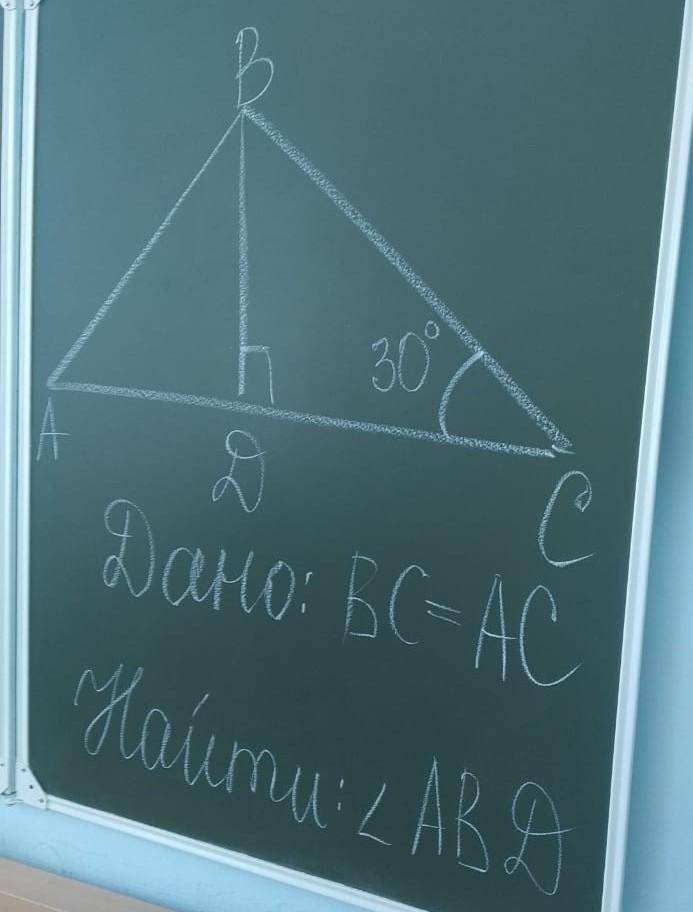 B
30°
A
Д
C
Дано: BC = AC
Найти: ∠ABД